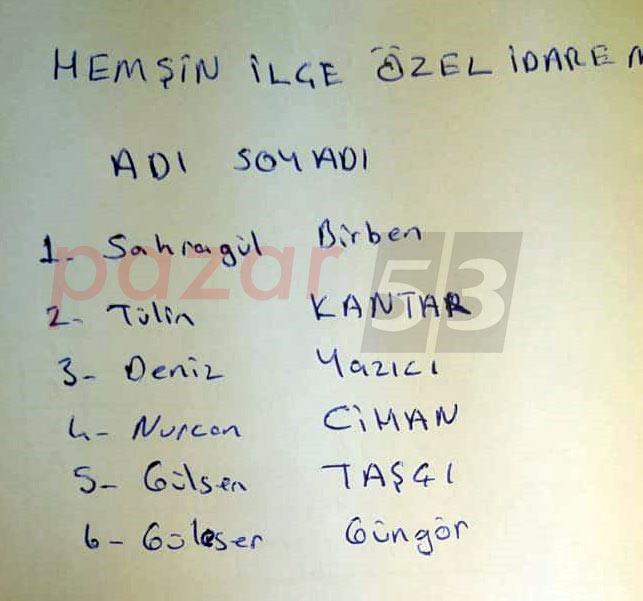 HEMŞİN İLÇE ÖZEL İDARE
ADI SOYADI
1- Sahragül Birben
2- Tülin KANTAR
3- Deniz Yazıcı
4- Nurcan CİHAN
5- Gülsen TAŞÇI
6- Güleser Güngör
pazar 53